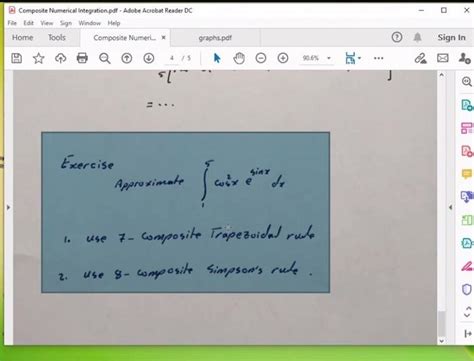 Composite Numerical Integration.pdf - Adobe Acrobat Reader DC
File Edit View Sign Window Help
Home Tools Composite Numeri... × graphs.pdf ? Sign In
4 / 5 90.6%
= ...
Exercise
Approximate ∫₁⁵ cos²x e^sinx dx
1. use 7- composite Trapezoidal rule
2. use 8- composite Simpson's rule.